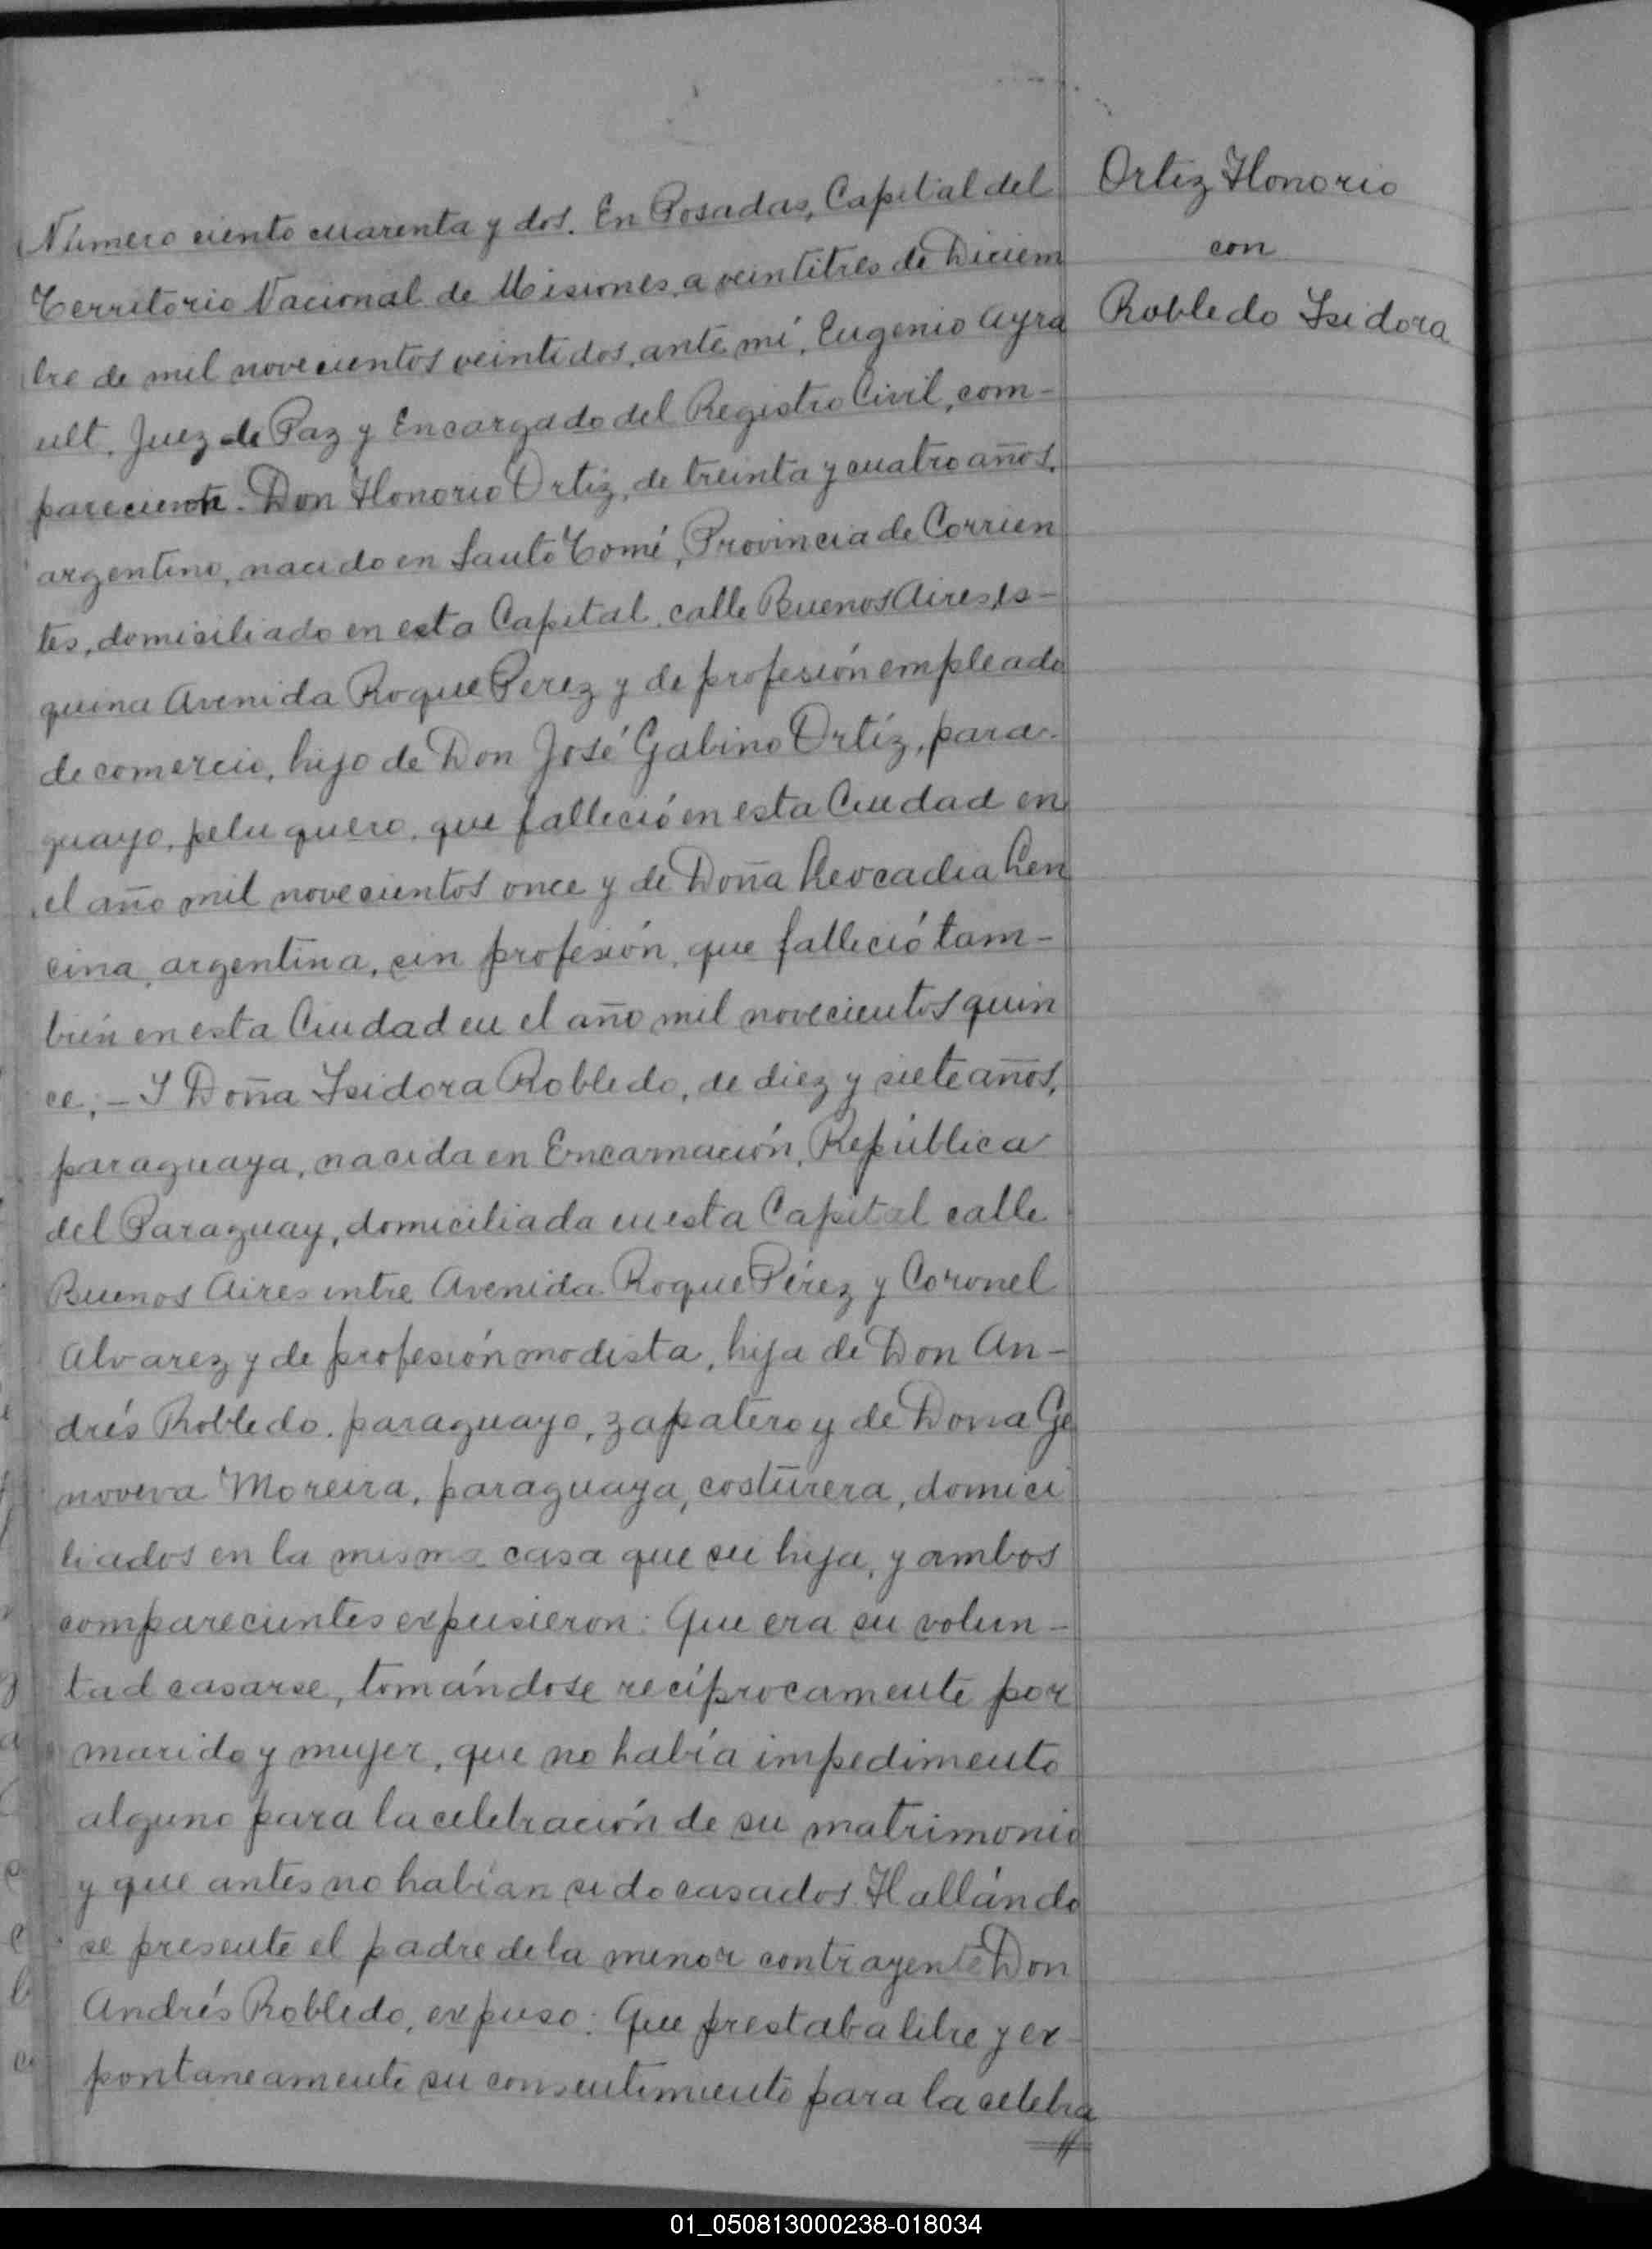 Número ciento cuarenta y dos. En Posadas, Capital del
Territorio Nacional de Misiones, a veintitres de Diciem
bre de mil novecientos veintidos, ante mí, Eugenio Ayra
ult. Juez de Paz y Encargado del Registro Civil, com-
parecieron. Don Honorio Ortiz, de treinta y cuatro años,
argentino, nacido en Santo Tomé, Provincia de Corrien
tes, domiciliado en esta Capital, calle Buenos Aires, es-
quina Avenida Roque Perez y de profesión empleado
de comercio, hijo de Don José Gabino Ortíz, para-
guayo, peluquero, que falleció en esta Ciudad en
el año mil novecientos once y de Doña Leocadia Len
cina, argentina, sin profesión, que falleció tam-
bién en esta Ciudad en el año mil novecientos quin
ce; - Y Doña Isidora Robledo, de diez y siete años,
paraguaya, nacida en Encarnación, República
del Paraguay, domiciliada en esta Capital calle
Buenos Aires entre Avenida Roque Pérez y Coronel
Alvarez y de profesión modista, hija de Don An-
drés Robledo, paraguayo, zapatero y de Dona Ge
noveva Moreira, paraguaya, costurera, domici
liados en la misma casa que su hija, y ambos
comparecientes expusieron: Que era su volun-
tad casarse, tomándose recíprocamente por
marido y mujer, que no había impedimento
alguno para la celebración de su matrimonio
y que antes no habían sido casados. Hallándo
se presente el padre de la menor contrayente Don
Andrés Robledo, expuso: Que prestaba libre y ex-
pontaneamente su consentimiento para la celebra
Ortiz Honorio
con
Robledo Isidora
01_050813000238-018034